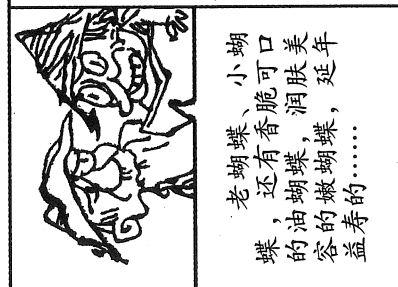 老蝴蝶、小蝴
蝶，还有香脆可口
的油蝴蝶，润肤美
容的嫩蝴蝶，延年
益寿的……